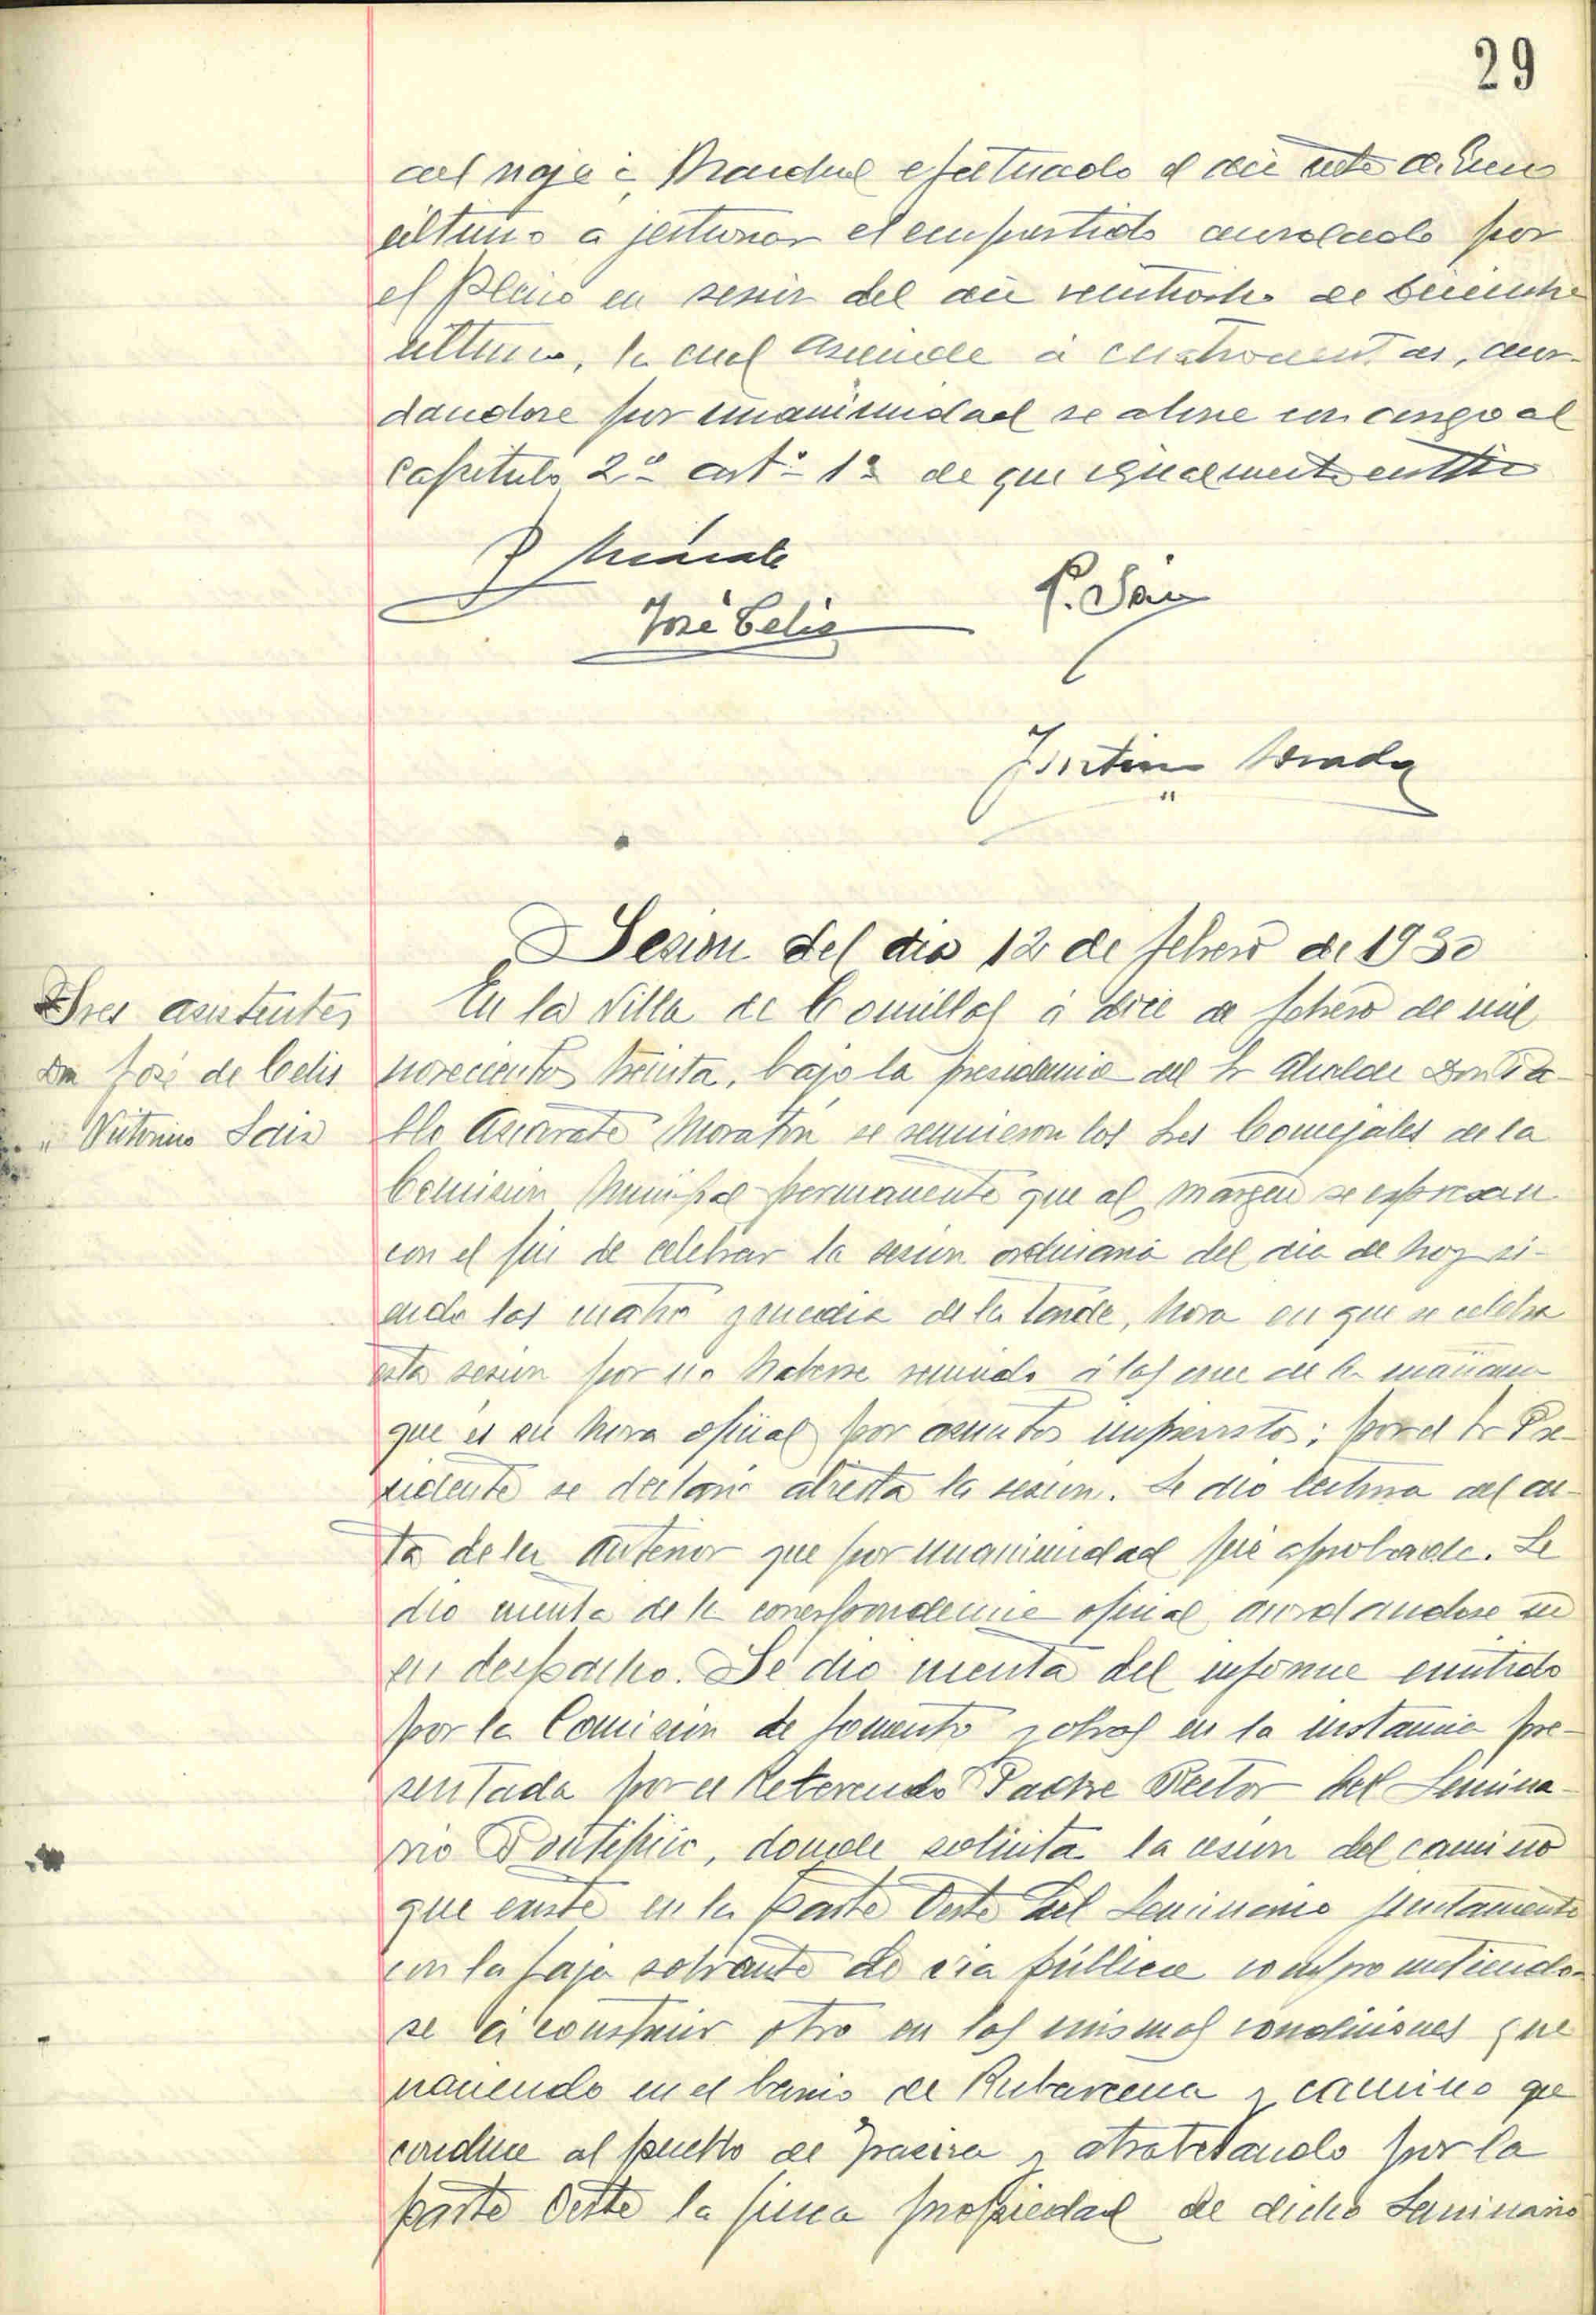 29
del viaje á Madrid efectuado el dia siete de Enero
último a jestionar el empréstito acordado por
el Pleno en sesión del dia veintiocho de Diciembre
último, la cual asciende á cuatrocientas, acor-
dandose por unanimidad se abone con cargo al
Capitulo 2º artº 1º de que igualmente
José Celis
P. Sáiz
Sesion del dia 12 de febrero de 1930
Sres asistentes
Don José de Celis
" Victorino Saiz
En la Villa de Comillas á doce de febrero de mil
novecientos treinta, bajo la presidencia del Sr Alcalde Don Pa-
blo Azcárate Moratín se reunieron los Sres Concejales de la
Comisión Municipal permanente que al margen se expresan
con el fin de celebrar la sesión ordinaria del dia de hoy si-
endo las cuatro y media de la tarde, hora en que se celebra
esta sesión por no haberse reunido á las once de la mañana
que es su hora oficial por asuntos imprevistos; por el Sr Pre-
sidente se declaró abierta la sesión. Se dio lectura del ac-
ta de la anterior que por unanimidad fué aprobada. Se
dio cuenta de la correspondencia oficial acordandose su
en despacho. Se dio cuenta del informe emitido
por la Comisión de fomento y obras en la instancia pre-
sentada por el Reverendo Padre Rector del Semina-
rio Pontificio, donde solicita la cesión del camino
que existe en la parte Oeste del Seminario juntamente
con la faja sobrante de via pública comprometiendo-
se á construir otro en las mismas condiciones que
naciendo en el barrio de Rubarcena y camino que
conduce al pueblo de Trasierra y atravesando por la
parte Oeste la finca propiedad de dicho Seminario